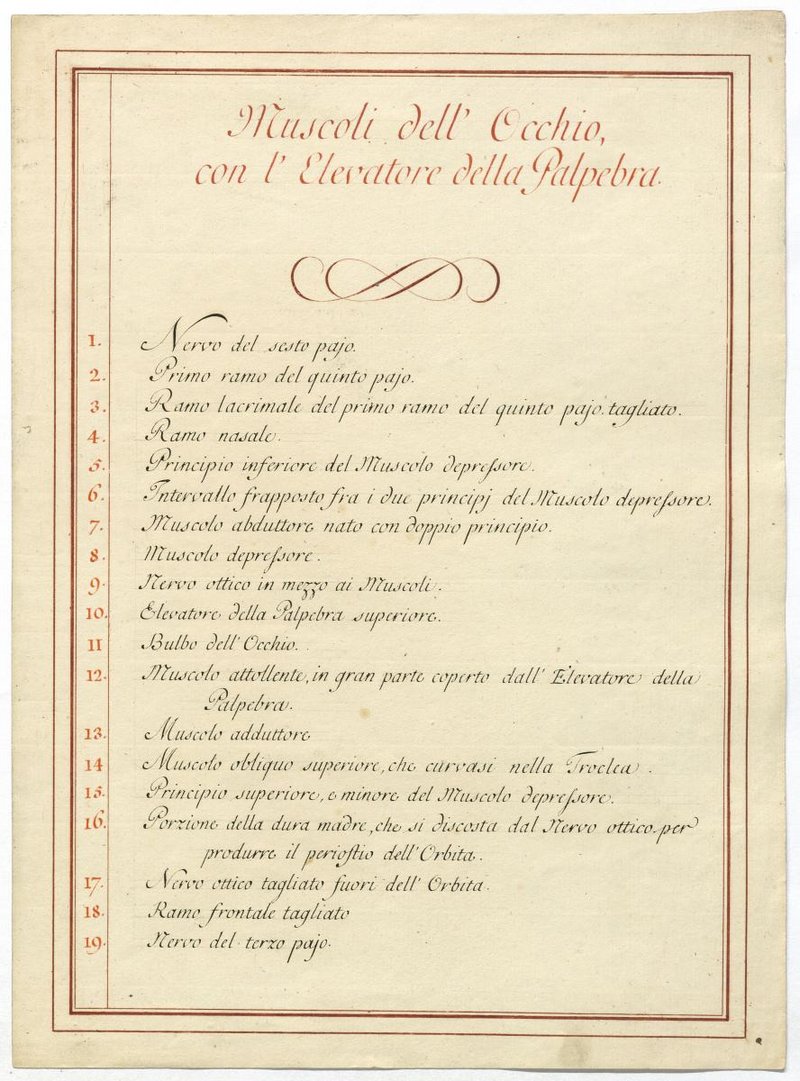 Muscoli dell' Occhio,
con l' Elevatore della Palpebra.
1. Nervo del sesto pajo.
2. Primo ramo del quinto pajo.
3. Ramo lacrimale del primo ramo del quinto pajo. tagliato.
4. Ramo nasale.
5. Principio inferiore del Muscolo depreſsore.
6. Intervallo frapposto fra i due principj del Muscolo depreſsore.
7. Muscolo abduttore nato con doppio principio.
8. Muscolo depreſsore.
9. Nervo ottico in mezzo ai Muscoli.
10. Elevatore della Palpebra superiore.
11 Bulbo dell' Occhio.
12. Muscolo attollente, in gran parte coperto dall' Elevatore della
Palpebra.
13. Muscolo adduttore
14 Muscolo obliquo superiore, che curvasi nella Troclea.
15. Principio superiore, e minore del Muscolo depreſsore.
16. Porzione della dura madre, che si discosta dal Nervo ottico per
produrre il perioſtio dell' Orbita.
17. Nervo ottico tagliato fuori dell' Orbita.
18. Ramo frontale tagliato
19. Nervo del terzo pajo.